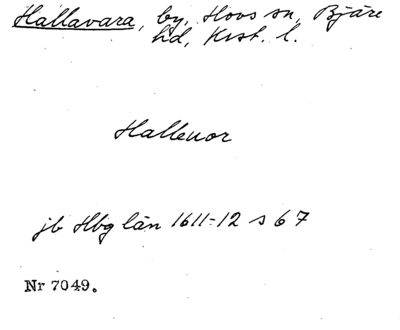 Hallavara, by, Hovs sn, Bjäre
hd, Krist. l.
Hallenor
jb Hbg län 1611-12 s 67
Nr 7049.